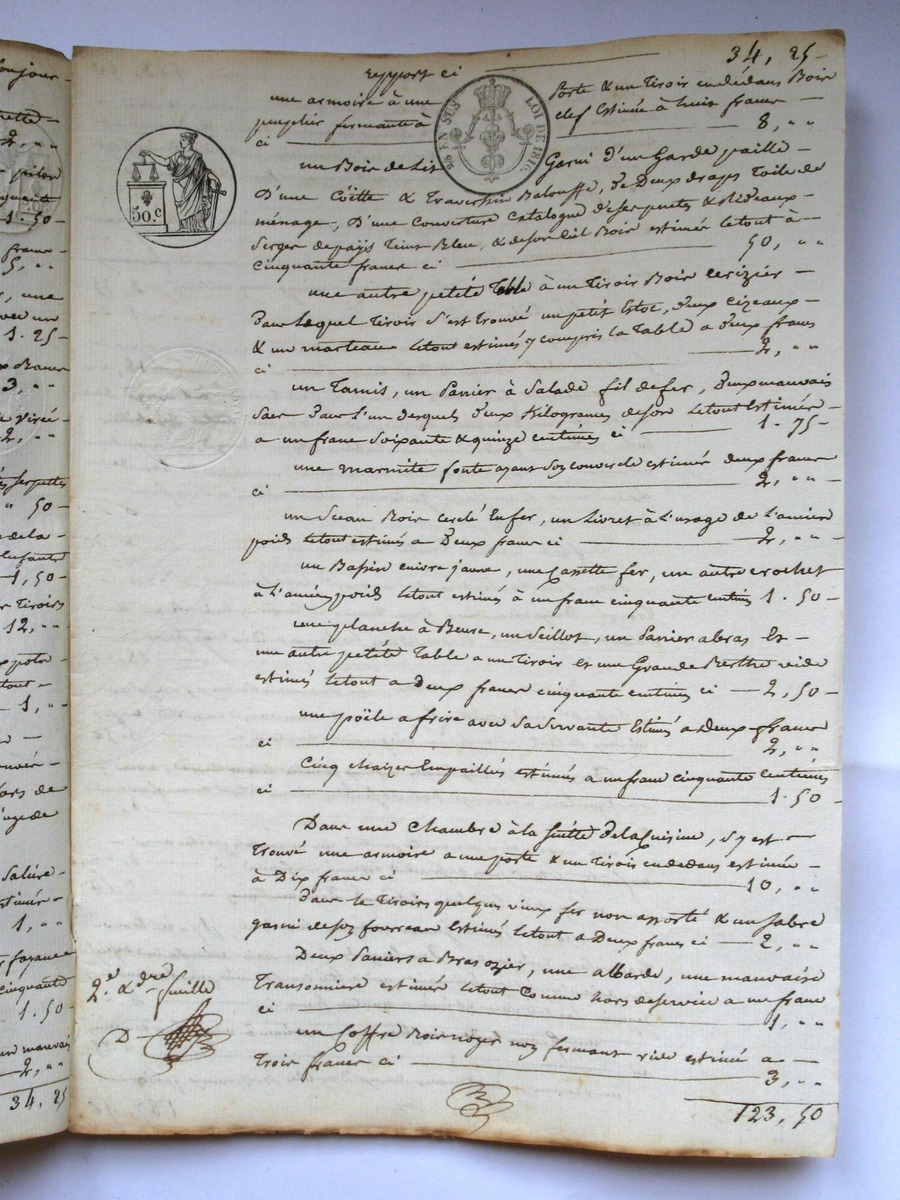 report ci 34, 25
une armoire à une porte & un Tiroir en dédans Bois
peuplier fermante à clef Estimée à huit francs
ci 8, " "
un Bois de Lit Garni d'un Garde paille
D'une Coëtte & Traversin Balouffe, De Deux draps Toile de
ménage, D'une Couverture Catalogne, & Rideaux
Serger de païs Teint Bleu, & de son Ciel Bois estimés letout à
cinquante francs ci 50, " "
une autre petite Table à un Tiroir Bois cerizier
Dans Lequel Tiroir s'est Trouvé un petit Estoc, Deux cizeaux
& un marteau letout estimés y compris la Table a Deux francs
ci 2, " "
un Tamis, un Panier à Salade fil de fer, Deux mauvais
Sacs Dans L'un desquels Deux Kilogrames de son Letout Estimés
a un franc Soixante & quinze centimes ci 1.75
une marmite fonte ayant son couvercle estimée deux francs
ci 2, " "
un Sceau Bois cerclé En fer, un Livret à L'usage de L'ancien
poids letout estimés a Deux francs ci 2, " "
un Bassin cuivre jaune, une Cassette fer, un autre crochet
à L'ancien poids letout estimés à un franc cinquante centimes 1.50
une planche à Beure, un Seillot, un Panier a bras Et
une autre petite Table a un Tiroir Et une Grande Berthe vide
estimés letout a Deux francs cinquante centimes ci 2,50
une pöile a frire avec Sa Servante Estimés a Deux francs
ci 2, " "
Cinq chaizes Empaillés estimées a un franc cinquante Centimes
ci 1.50
Dans une Chambre à la Suitte de la Cuisine, S'y est
Trouvé une armoire a une porte & un Tiroir en dedans estimée
à Dix francs ci 10, " "
Dans le Tiroirs quelques vieux fer non assorté & un Sabre
garni de son fourreau Estimés letout a Deux francs ci 2, " "
Deux Paniers a Bras ozier, une albarde, une mauvaise
Transonniere estimés letout Comme hors de service a un franc
ci 1, " "
un Coffre Bois noyer non fermant vide estimé a
Trois francs ci 3, " "
123, 50
2.e & dre feuille
D
50 c
EN SUS
LOI DE 1816
1.50
1.25
3, "
2, "
50
1,50
12, "
1, "
1, "
1.50
2, "
34, 25